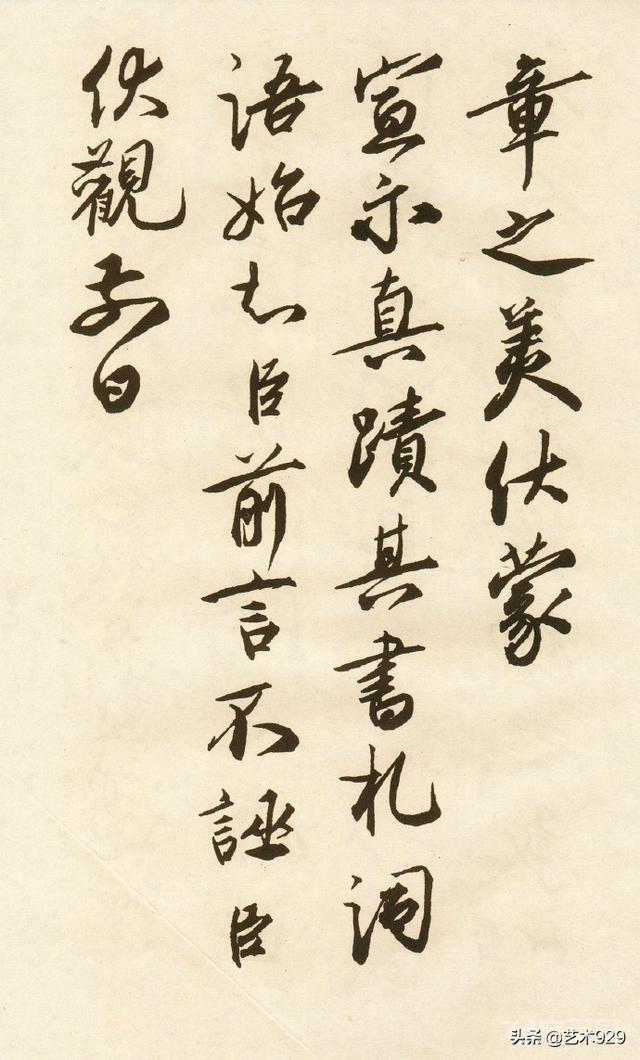 章之美伏蒙
宣示真蹟其書札詞
語始知臣前言不誣臣
伏觀日
头条 @艺术929